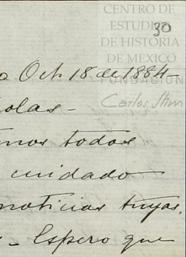 CENTRO DE
ESTUDIOS
DE HISTORIA
DE MEXICO
FUNDACIÓN
Carlos Slim
30
Oct. 18 de 1884-
olas-
mos todos
cuidado
noticias tuyas.
- Espero que